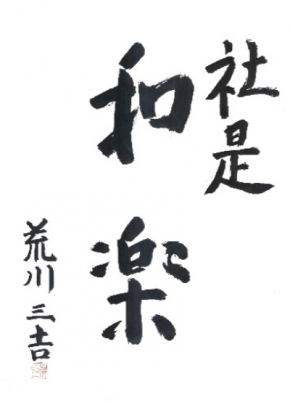 社是
和楽
荒川三吉